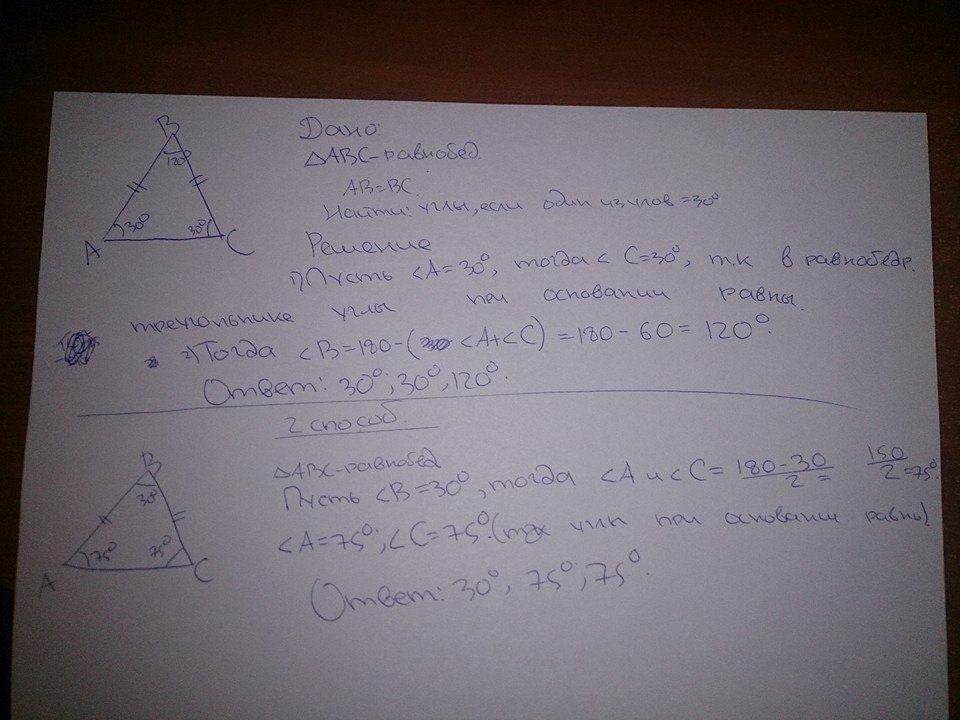 B
120°
30°
30°
A
C
Дано:
△ABC-равнобед.
AB=BC.
Найти: углы, если один из углов =30°
Решение
1) Пусть <A=30°, тогда < C=30°, т.к в равнобедр.
треугольнике углы при основании равны.
2) Тогда <B=180-( <A+<C) =180-60= 120°.
Ответ: 30°; 30°, 120°.
2 способ.
B
30°
75°
75°
A
C
△ABC-равнобед
Пусть <B=30°, тогда <A и <C= 180-30/2 = 150/2 =75°
<A=75°; <C=75°. ( углы при основании равны)
Ответ: 30°, 75°; 75°.